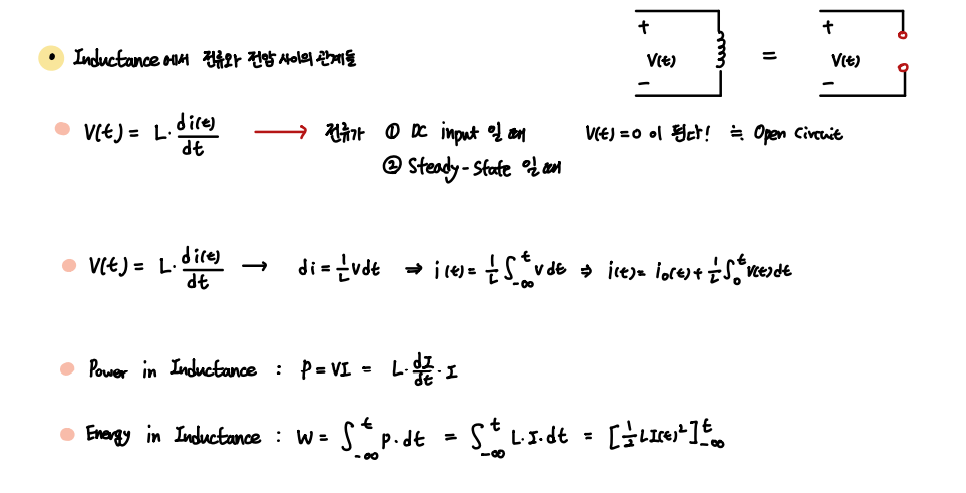 • Inductance에서 전류와 전압 사이의 관계들
+ V(t) − = + V(t) −
V(t) = L· di(t)/dt → 전류가 ① DC input 일 때 V(t)=0 이 된다! ≒ Open Circuit
② Steady-State 일 때
V(t) = L· di(t)/dt → di = 1/L vdt ⇒ i(t) = 1/L ∫_{-∞}^{t} v dt ⇒ i(t) = i₀(t) + 1/L ∫_{0}^{t} V(t) dt
Power in Inductance : P = VI = L· dI/dt · I
Energy in Inductance : W = ∫_{-∞}^{t} p·dt = ∫_{-∞}^{t} L·I·dt = [1/2 LI(t)²]_{-∞}^{t}